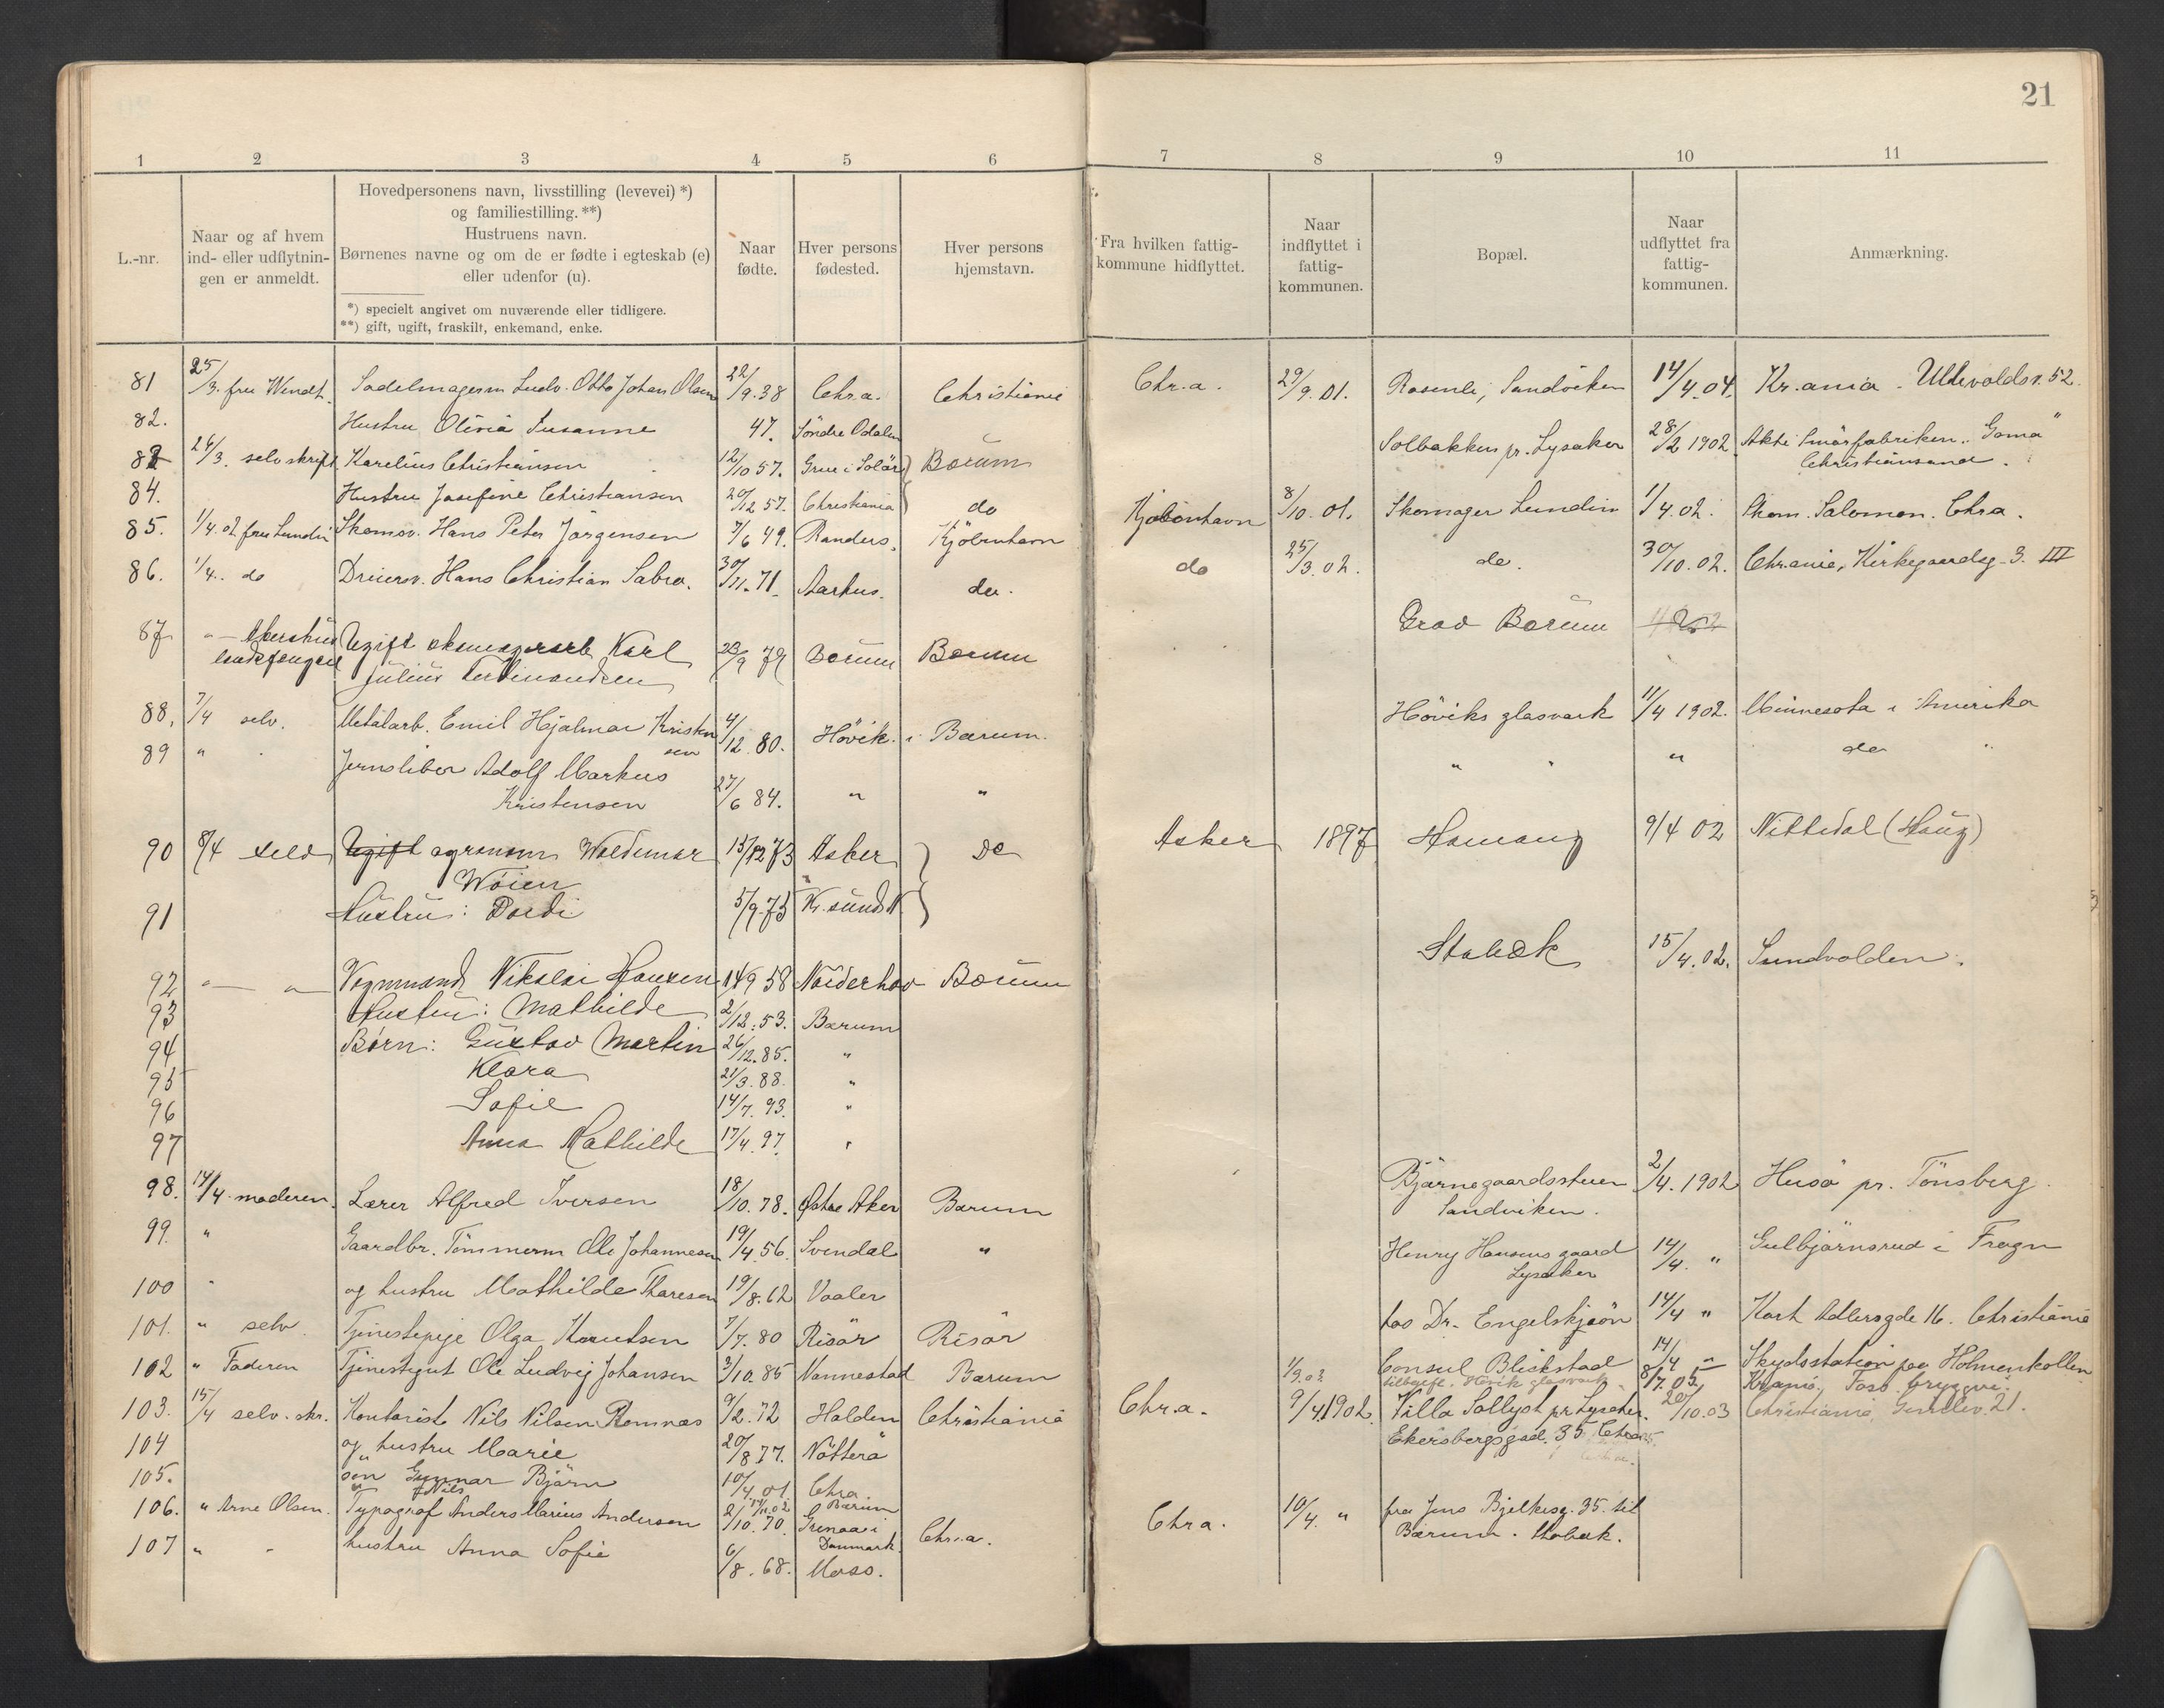 21
1 2 3 4 5 6 7 8 9 10 11
L.-nr.
Naar og af hvem
ind- eller udflytnin-
gen er anmeldt.
Hovedpersonens navn, livsstilling (levevei) *)
og familiestilling. **)
Hustruens navn.
Børnenes navne og om de er fødte i egteskab (e)
eller udenfor (u).
*) specielt angivet om nuværende eller tidligere.
**) gift, ugift, fraskilt, enkemand, enke.
Naar
fødte.
Hver persons
fødested.
Hver persons
hjemstavn.
Fra hvilken fattig-
kommune hidflyttet.
Naar
indflyttet i
fattig-
kommunen.
Bopæl.
Naar
udflyttet fra
fattig-
kommunen.
Anmærkning.
81 25/3. fru Wendt. Sadelmagerm Ludv. Otto Johan Olsen 22/9.38 Chra. Christiania Chr.a. 29/9.01. Rosenli, Sandviken 14/4.04. Kr.ania. Ullevoldsv. 52.
82. Hustru Olivia Susanne 47. Söndre Odalen
83 26/3. selv skriftl Karelius Christiansen 12/10 57. Grue i Solör Bærum Solbakken pr. Lysaker 28/2 1902 Akti Smörfabriken "Goma"
Christiansand.
84. Hustru Josefine Christiansen 20/12 57. Christiania do
85. 1/4.02 fru Lundin Skomsv. Hans Peter Jörgensen 7/6 49. Randers. Kjöbenhavn Kjøbenhavn 8/10.01. Skomager Lundin 1/4.02. Skom. Salomon. Chra.
86. 1/4. do Dreiersv. Hans Christian Sabro. 30/11.71. Aarhus. do. do 25/3.02. do. 30/10.02. Chr.ania, Kirkegaardsg. 3. III
87 " Akershus
landsfengsel Ugift skomagerarb Karl
Julius Ferdinandsen 23/9 79 Bærum Bærum Grav Bærum
88. 7/4 selv. Metalarb. Emil Hjalmar Kristen
sen 4/12.80. Hövik. i Bærum. Höviks glasværk 11/4 1902. Minnesota i Amerika
89 " Jernsliber Adolf Markus
Kristensen 27/6 84. " " " " do "
90 8/4 selv Ugift agronom Waldemar
Wøien 15/12 73 Asker Do Asker 1897 Hamang 9/4 02 Nittedal (Haug)
91 Hustru: Dordi 5/9.75 Kr.sund N
92 " " Vognmand Nikolai Hansen 14/9 58 Norderhov Bærum Stabæk 15/4.02. Sundvolden.
93 Hustru: Mathilde 2/12.53. Bærum
94 Børn: Gustav Martin 26/12.85. "
95 Klara 21/3.88. "
96 Sofie 14/7.93. "
97 Anna Mathilde 17/4.97. "
98. 14/4 moderen. Lærer Alfred Iversen 18/10.78. Østre Aker Bærum Bjärnegaardsstuen
Sandviken. 2/4.1902 Husö pr. Tönsberg.
99. " Gaardbr. Tömmerm Ole Johannesen 19/4 56. Svendal " Henry Hansens gaard
Lysaker 14/4. " Gulbjörnsrud i Frogn
100 " og hustru Mathilde Tharesen 19/8.62 Vaaler
101. " selv. Tjenestepige Olga Knutsen 7/7.80 Risör Risör hos Dr. Engelskjøn 14/4 " Kort Adlersgde 16. Christiania
102 " Faderen Tjenestegut Ole Ludvig Johansen 3/10.85 Vannestad Bærum 1/9.02 Consul Blickstad
tilbagefl. Hövik glasværk 14/4 "
8/7.03 Skydsstation paa Holmenkollen
Kr.ania, Foss bryggeri.
103. 15/4 selv. skr. Kontorist Nils Nilsen Romnæs 9/2.72 Halden Christiania Chr.a. 9/4.1902. Villa Sollyst pr. Lysaker. 20/10.03 Christiania, 21.
Ekersbergsgad. 35 Chra
104 og hustru Marie 20/8 77. Nötterö
105. " sön Gunnar Björn 10/4.01. Chra.
" Nils 14/11.02 Bærum
106. " Arne Olsen. Typograf Anders Marius Andersen 2/10.70. Grenaa i
Danmark. Chr.a. Chra. 10/4. " fra Jens Bjelkesg. 35. til
Bærum. Stabæk.
107 " " hustru Anna Sofie 6/8.68. Moss.